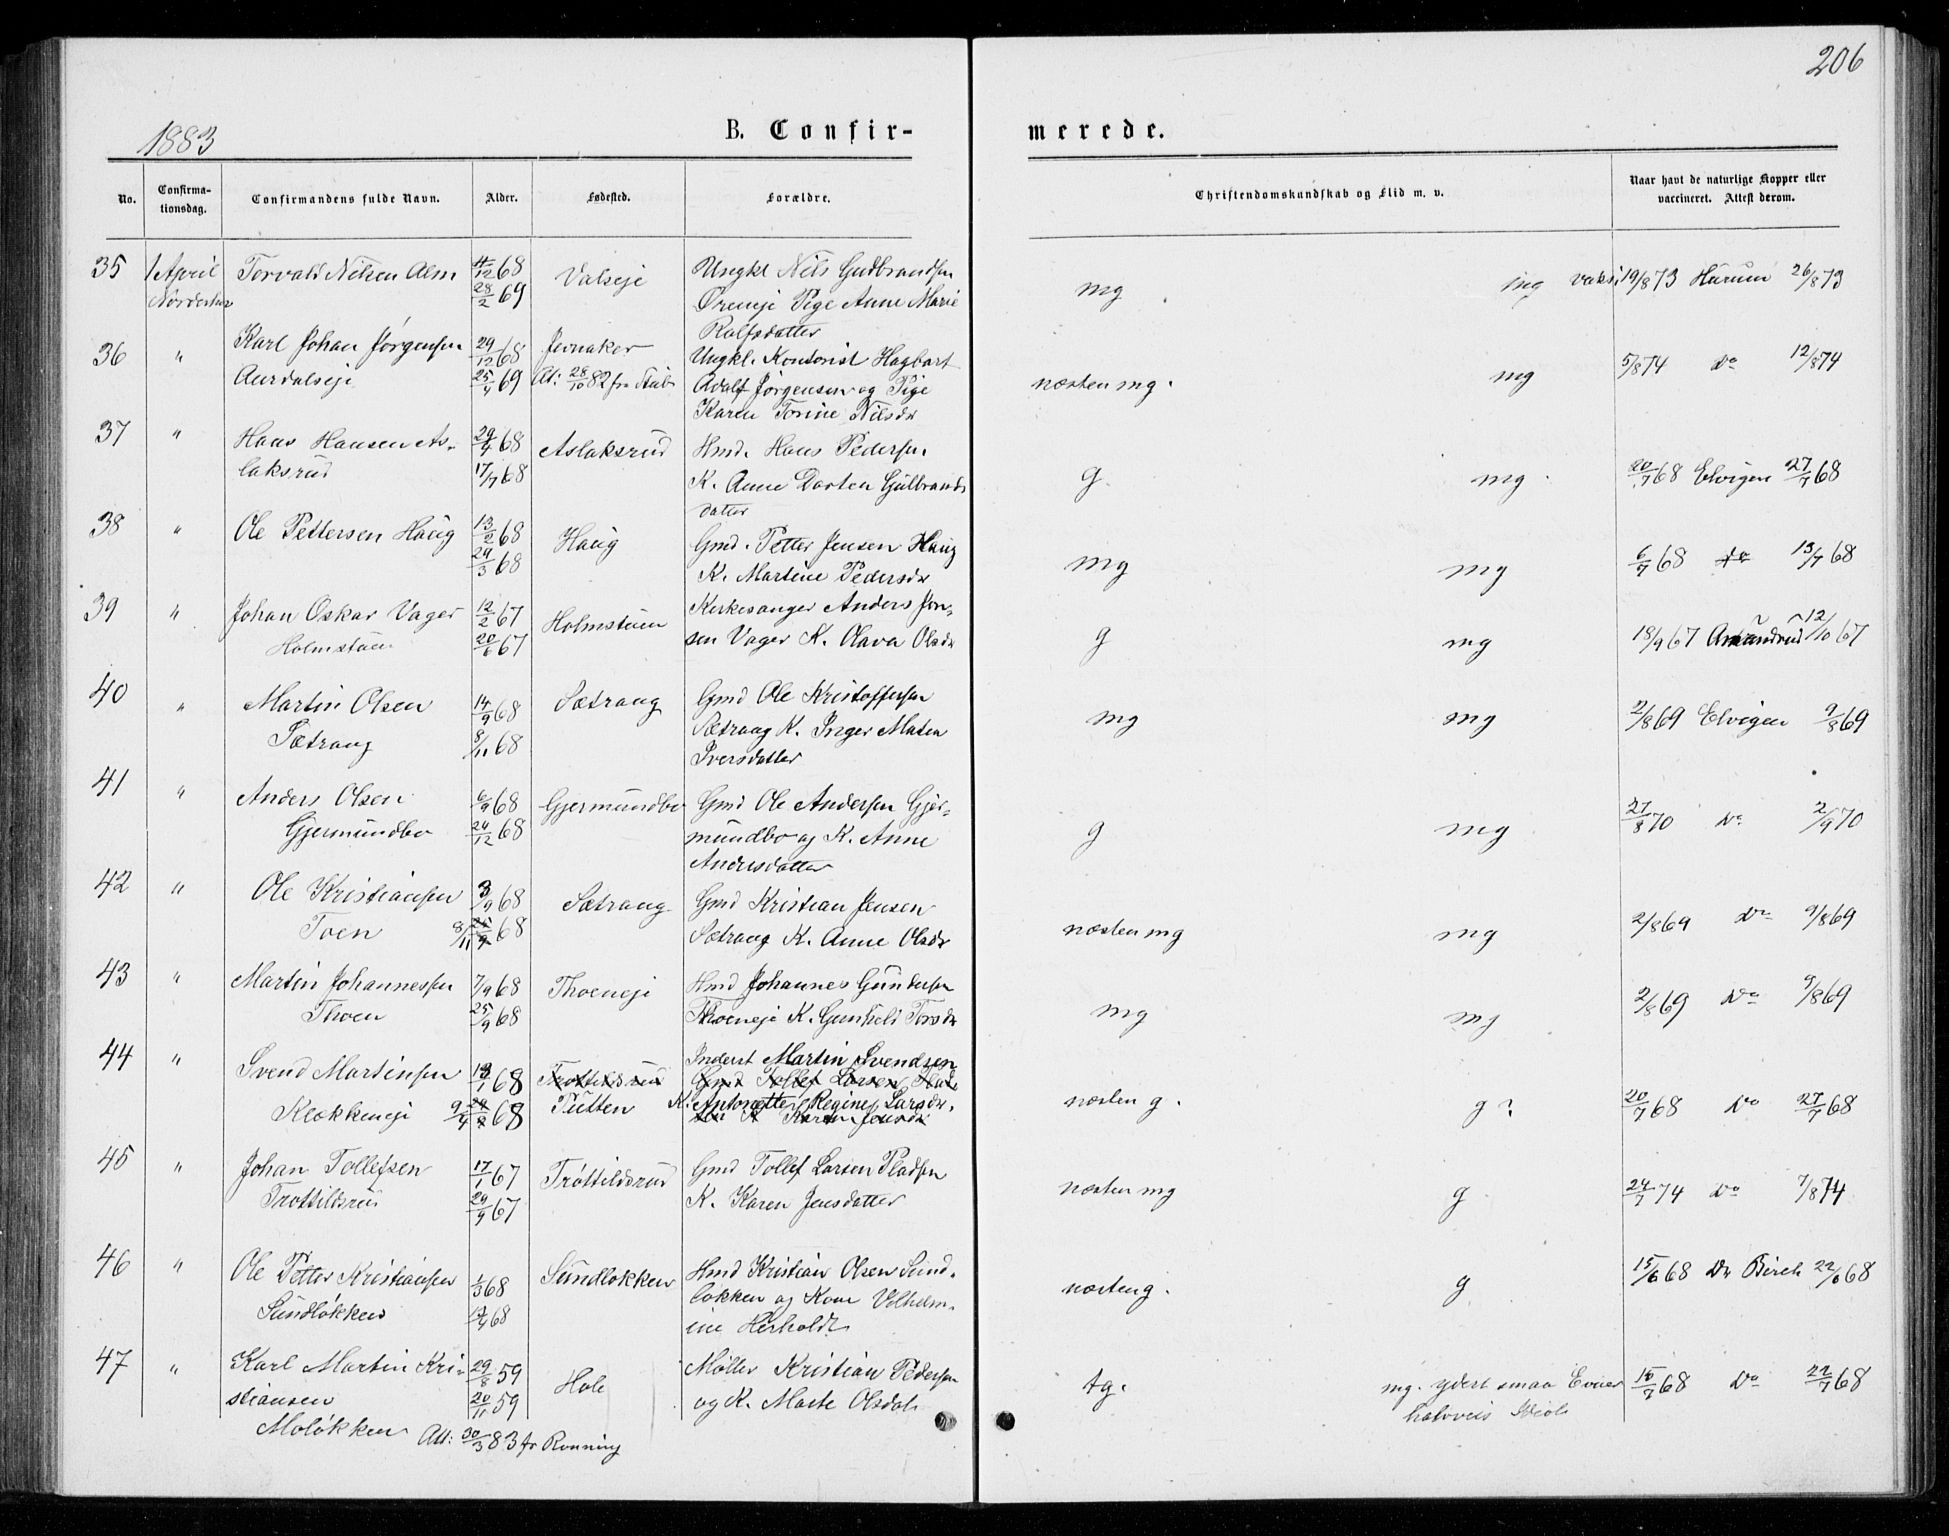 206
1883
B. Confir-
merede.
No.
Confirma-
tionsdag.
Confirmandens fulde Navn.
Alder.
Fødested.
Forældre.
Christendomskundskab og Flid m. v.
Naar havt de naturlige Kopper eller
vaccineret. Attest derom.
35 1 April Torvald Nilsen Alm 11/12 68 Valseje Ungkl Nils Gudbrandsen
28/2 69 Pige Anne Marie mg mg vaks. 19/8 73 Hurum 26/8 73
Rolfsdatter
36 " Karl Johan Jørgensen 29/12 68 Jevnaker Ungkl. Kontorist Hagbart
Aurdalseje 25/4 69 At: 28/10 82 fra Adolf Jørgensen og Pige næsten mg. mg 5/8 74 Do 12/8 74
Karen Torine Nilsdr
37 " Hans Hansen As- 29/4 68 Aslaksrud Hmd. Hans Pedersen
laksrud 17/7 68 K. Anne Dorten Gulbrands g. mg. 20/7 68 Elvigen 27/7 68
datter
38 " Ole Pettersen Haug 13/2 68 Haug Gmd. Petter Jensen Haug
29/3 68 K. Martine Pedersdr mg mg 6/7 68 do 13/7 68
39 " Johan Oskar Vager 12/2 67 Holmstuen Kirkesanger Anders Jon-
Holmstuen 20/6 67 sen Vager K. Olava Olsdr g mg 18/9 67 Amundrud 12/10 67
40 " Martin Olsen 14/9 68 Sætrang Gmd Ole Kristoffersen
Sætrang 8/11 68 Sætrang K. Inger Maten mg mg 2/8 69 Elvigen 9/8 69
Iversdatter
41 " Anders Olsen 6/9 68 Gjermundbo Gmd Ole Andersen Gjer-
Gjermundbo 26/12 68 mundbo og K. Anne g mg 27/8 70 Do 2/9 70
Andersdatter
42 " Ole Kristiansen 3/9 68 Sætrang Gmd Kristian Jensen
Toen 8/11 68 Sætrang K. Anne Olsdr næsten mg mg 2/8 69 Do 9/8 69
43 " Martin Johannessen 7/9 68 Thoeneje Hmd Johannes Gundersen
Thoen 25/9 68 Thoeneje K. Gunhild Torsdr mg mg 2/8 69 Do 9/8 69
44 " Svend Martinsen 13/1 68 Trøttildsrud Inderst Martin Svendsen
Gmd Tollef Larsen
Klokkeneje 9/4 68 Putten K. Antonette Regine Larsdr. næsten g. g? 20/7 68 Do 27/7 68
K Karen Jensdr
45 " Johan Tollefsen 17/1 67 Trøttildsrud Gmd Tollef Larsen Pladsen
Trøttildsrud 29/9 67 K. Karen Jensdatter næsten mg g 24/7 74 Do 7/8 74
46 " Ole Petter Kristiansen 1/3 68 Sundløkken Hmd Kristian Olsen Sund-
Sundløkken 12/4 68 løkken og Kone Vilhelm- næsten g. g 15/6 68 Dr Birch 22/6 68
ine Herholdt
47 " Karl Martin Kri- 29/8 59 Hole Møller Kristian Pedersen
stiansen 20/11 59 og K. Marte Olsdat. tg. mg. ydert smaa Evner 15/7 68 Do 22/7 68
halvveis Idiot
Moløkken Att: 30/3 83 fr Rønning